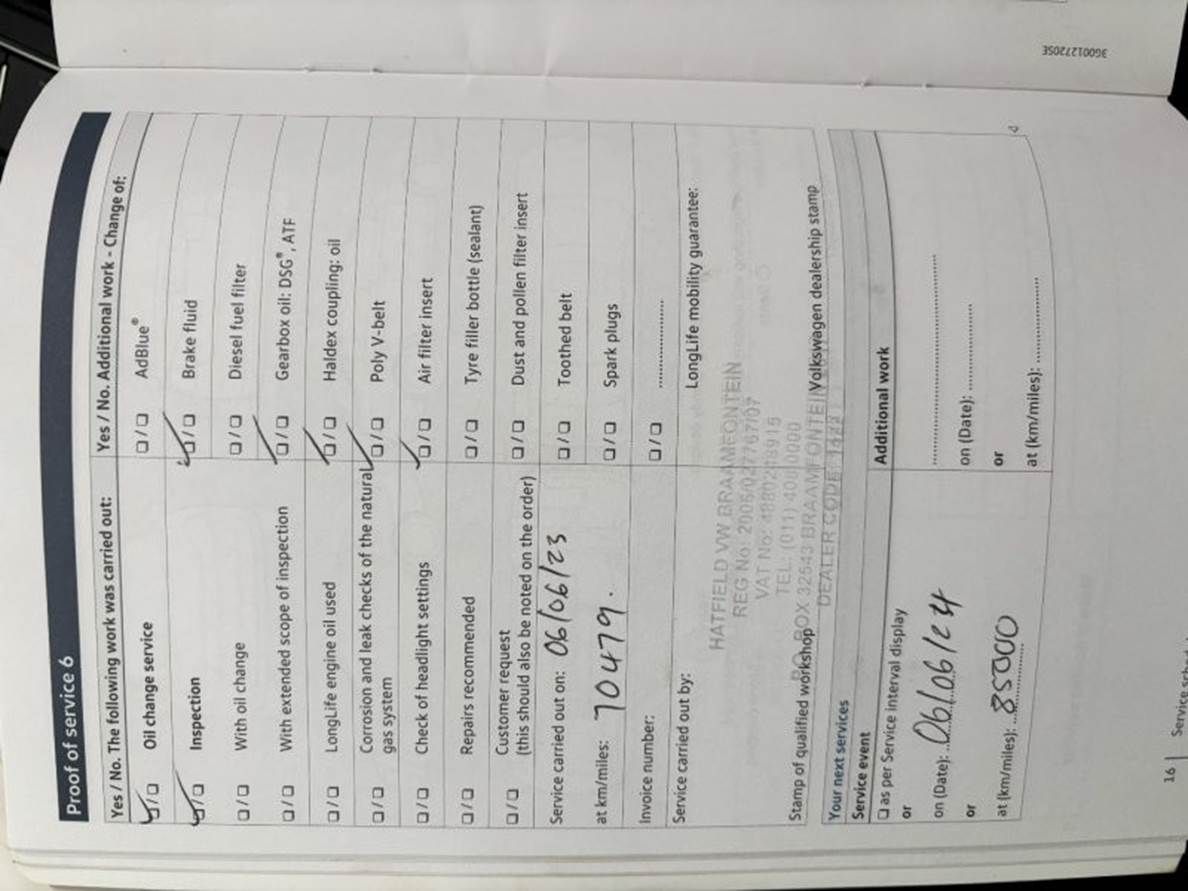 Proof of service 6
Yes / No. The following work was carried out:
☑/☐ Oil change service
☑/☐ Inspection
☐/☐ With oil change
☐/☐ With extended scope of inspection
☐/☐ LongLife engine oil used
☐/☐ Corrosion and leak checks of the natural
gas system
☐/☐ Check of headlight settings
☐/☐ Repairs recommended
☐/☐ Customer request
(this should also be noted on the order)
Service carried out on: 06/06/23
at km/miles: 70479.
Invoice number:
Service carried out by:
Yes / No. Additional work - Change of:
☐/☐ AdBlue®
☑/☐ Brake fluid
☐/☐ Diesel fuel filter
☑/☐ Gearbox oil: DSG®, ATF
☑/☐ Haldex coupling: oil
☑/☐ Poly V-belt
☑/☐ Air filter insert
☐/☐ Tyre filler bottle (sealant)
☐/☐ Dust and pollen filter insert
☐/☐ Toothed belt
☐/☐ Spark plugs
☐/☐ ....................
LongLife mobility guarantee:
HATFIELD VW BRAAMFONTEIN
REG No: 2005/027767/07
VAT No: 4880218915
TEL: (011) 4080000
BOX 32543 BRAAMFONTEIN
DEALER CODE:
Stamp of qualified workshop
Volkswagen dealership stamp
Your next services
Service event
☐ as per Service interval display
or
on (Date): 06/06/24
or
at (km/miles): 85000
Additional work
on (Date):
or
at (km/miles):
16 | Service
3G0012720SE